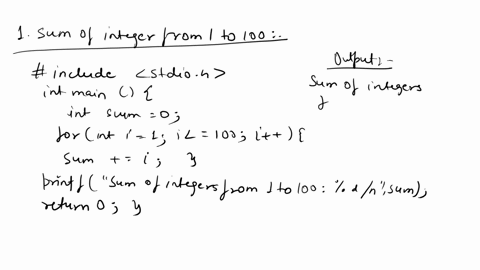 1. Sum of integer from 1 to 100:.
# include <stdio.h>
int main () {
int sum = 0;
for (int i = 1; i <= 100; i++) {
sum += i; }
printf ("Sum of integers from 1 to 100: %d /n", sum);
return 0; }
Output:-
Sum of integers
f